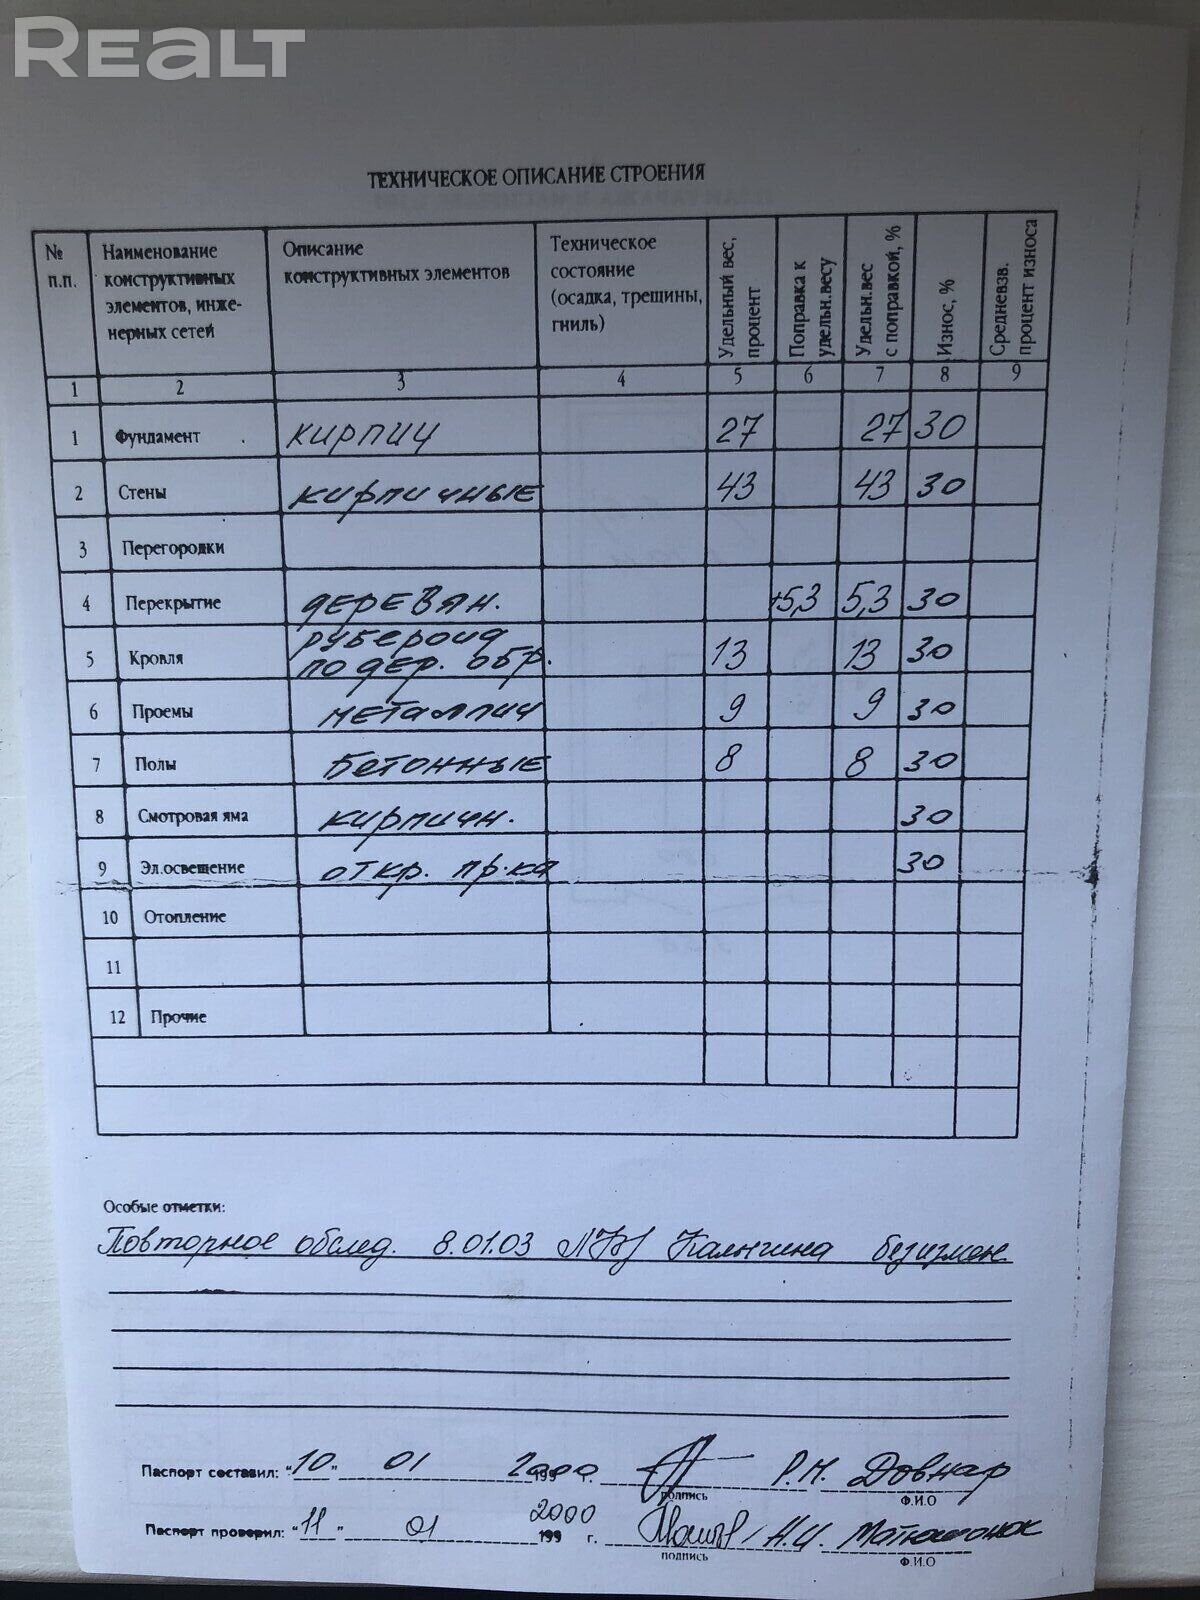 REALT
ТЕХНИЧЕСКОЕ ОПИСАНИЕ СТРОЕНИЯ
№ п.п.
Наименование конструктивных элементов, инже-нерных сетей
Описание конструктивных элементов
Техническое состояние (осадка, трещины, гниль)
Удельный вес, процент
Поправка к удельн.весу
Удельн.вес с поправкой, %
Износ, %
Средневзв. процент износа
1 2 3 4 5 6 7 8 9
1 Фундамент кирпич 27 27 30
2 Стены кирпичные 43 43 30
3 Перегородки
4 Перекрытие деревян. +5,3 5,3 30
5 Кровля рубероид по дер. обр. 13 13 30
6 Проемы металлич 9 9 30
7 Полы бетонные 8 8 30
8 Смотровая яма кирпичн. 30
9 Эл.освещение откр. пр-ка 30
10 Отопление
11
12 Прочие
Особые отметки:
Повторное обслед. 8.01.03 безизмен.
Паспорт составил: "10" 01 2000 199 г. Р.М. Довнар
подпись Ф.И.О
Паспорт проверил: "11" 01 2000 199 г. Н.И.
подпись Ф.И.О